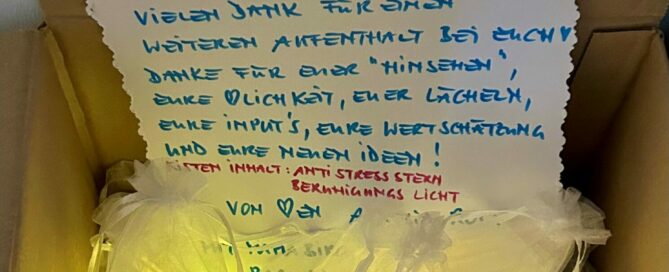 VIELEN DANK FÜR EINEN
WEITEREN AUFENTHALT BEI EUCH ♥
DANKE FÜR EUER "HINSEHEN",
EURE ♡LICHKEIT, EUER LÄCHELN,
EURE INPUT'S, EURE WERTSCHÄTZUNG
UND EURE NEUEN IDEEN!
KISTEN INHALT: ANTISTRESS STERN
BERUHIGUNGS LICHT
VOM ♡EN